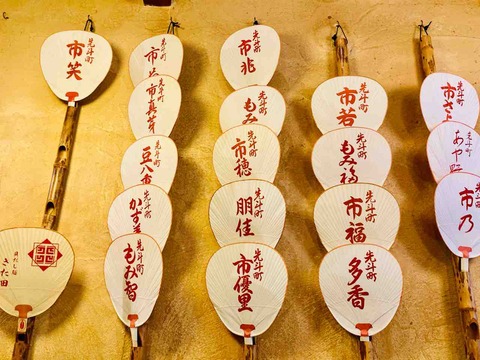 先斗町
市笑
きた田
先斗町
市
先斗町
市真芽
先斗町
豆八重
先斗町
かず美
先斗町
もみ智
先斗町
市兆
先斗町
もみ
先斗町
市穂
先斗町
朋佳
先斗町
市優里
先斗町
市若
先斗町
もみ福
先斗町
市福
先斗町
多香
先斗町
市さよ
先斗町
あや野
先斗町
市乃